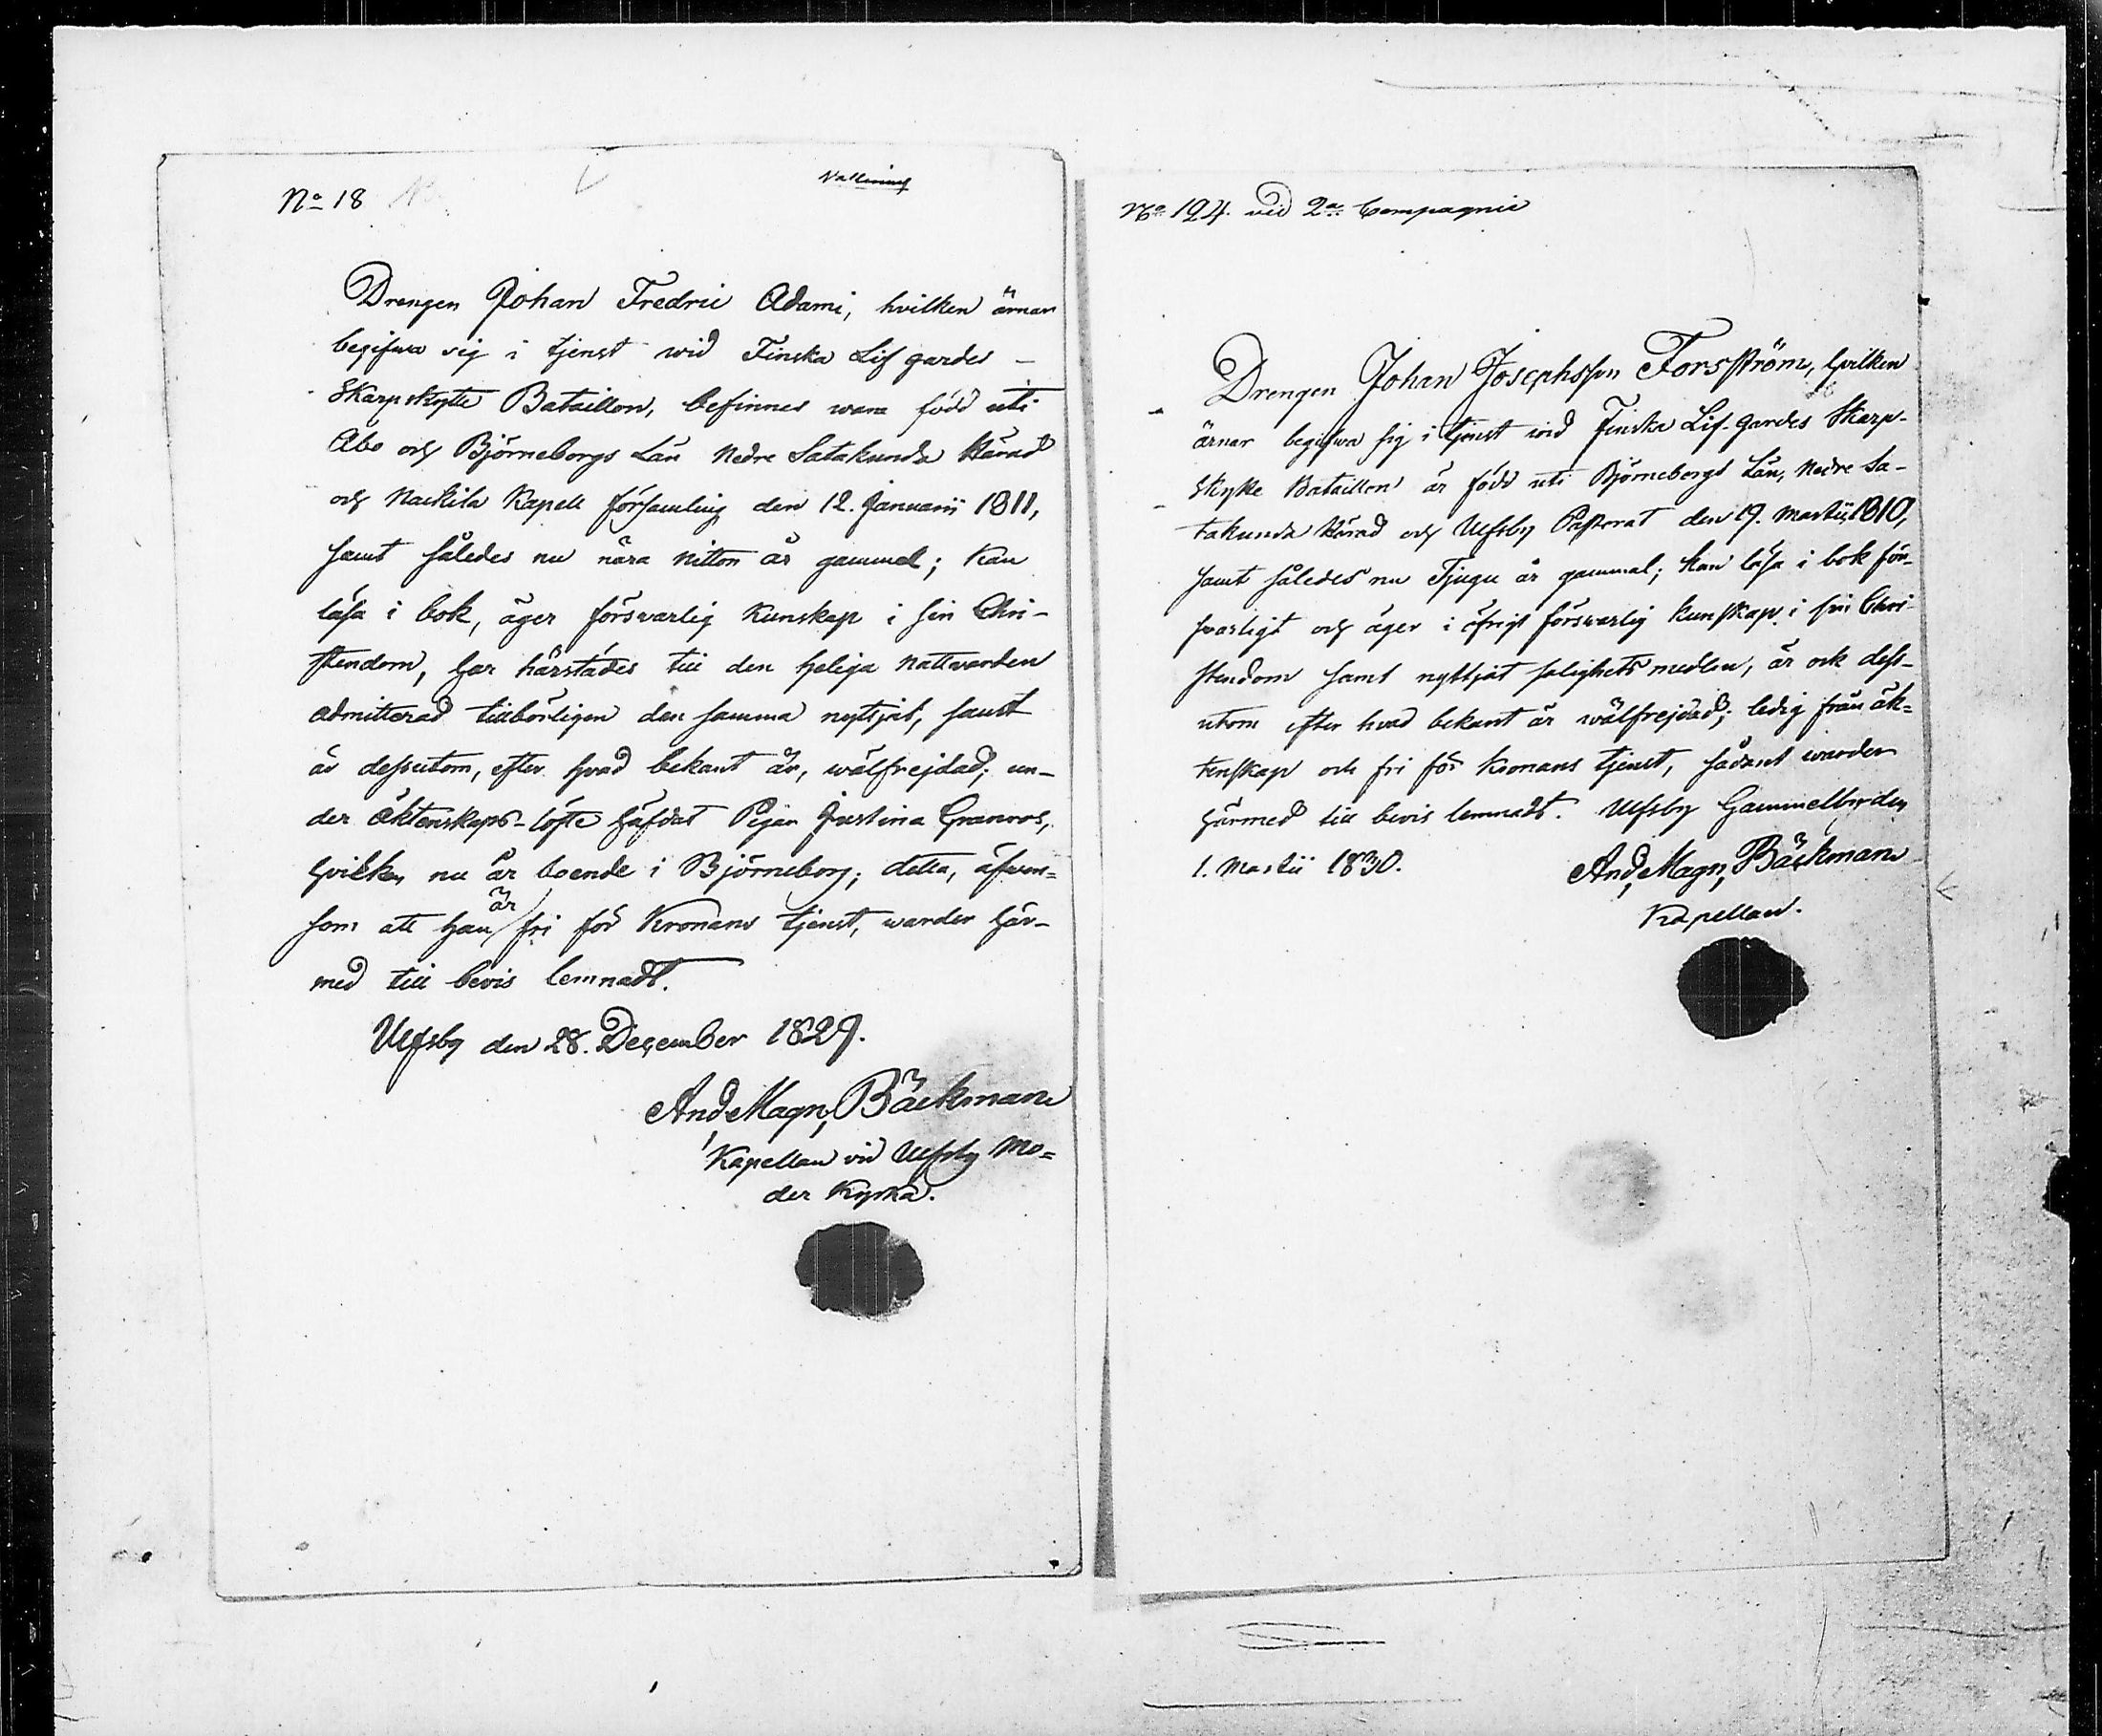 No 18
Drengen Johan Fredric Adami, hvilken ärnar
begifwa sig i tjenst wid Finska Lif gardes -
Skarpskytte Bataillon, befinnes wara född uti
Åbo och Björneborgs Län Nedre Satakunda Härad
och Nackila Kapell församling den 12. Januarii 1811,
samt således nu nära nitton år gammal; kan
läsa i bok, äger försvarlig kunskap i sin Chri-
stendom, har härstädes till den heliga nattvarden
admitterad tillbörligen den samma nyttjat, samt
är dessutom, efter hvad bekant är, wälfrejdad; un-
der äktenskaps-löfte häfdat Pigan Justina Granroos,
hvilken nu är boende i Björneborg; detta, äfven-
som att han är fri för Kronans tjenst, warder här-
med till bevis lemnadt.
Ulfsby den 28. December 1829.
And. Magn. Bäckman
Kapellan vid Ulfsby Mo=
der Kyrka.
No 124. vid 2a Compagnie
Drengen Johan Josephsson Forsström, hvilken
ärnar begifwa sig i tjenst wid Finska Lif-Gardes Skarp-
Skytte Bataillon är född uti Björneborgs Län, Nedre Sa-
takunda Härad och Ulfsby Pastorat den 19. Martii 1810,
samt således nu Tjugu år gammal; kan läsa i bok för-
svarligt och äger i öfrigt försvarlig kunskap i sin Chri-
stendom samt nyttjat salighets medlen, är ock dess-
utom efter hvad bekant är wälfrejdad; ledig från äk=
tenskap och fri för Kronans tjenst, sådant warder
härmed till bevis lemnadt. Ulfsby Gammelby den
1. Martii 1830. And. Magn. Bäckman
Kapellan.